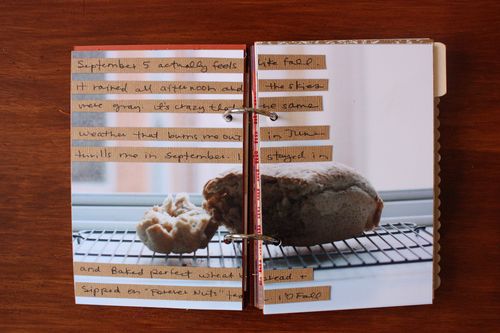 September 5 actually feels like fall.
it rained all afternoon and the skies
were gray. it's crazy that the same
weather that bums me out in June
thrills me in September. I stayed in
and baked perfect wheat bread +
sipped on "Forever Nuts" tea. I ♡ Fall